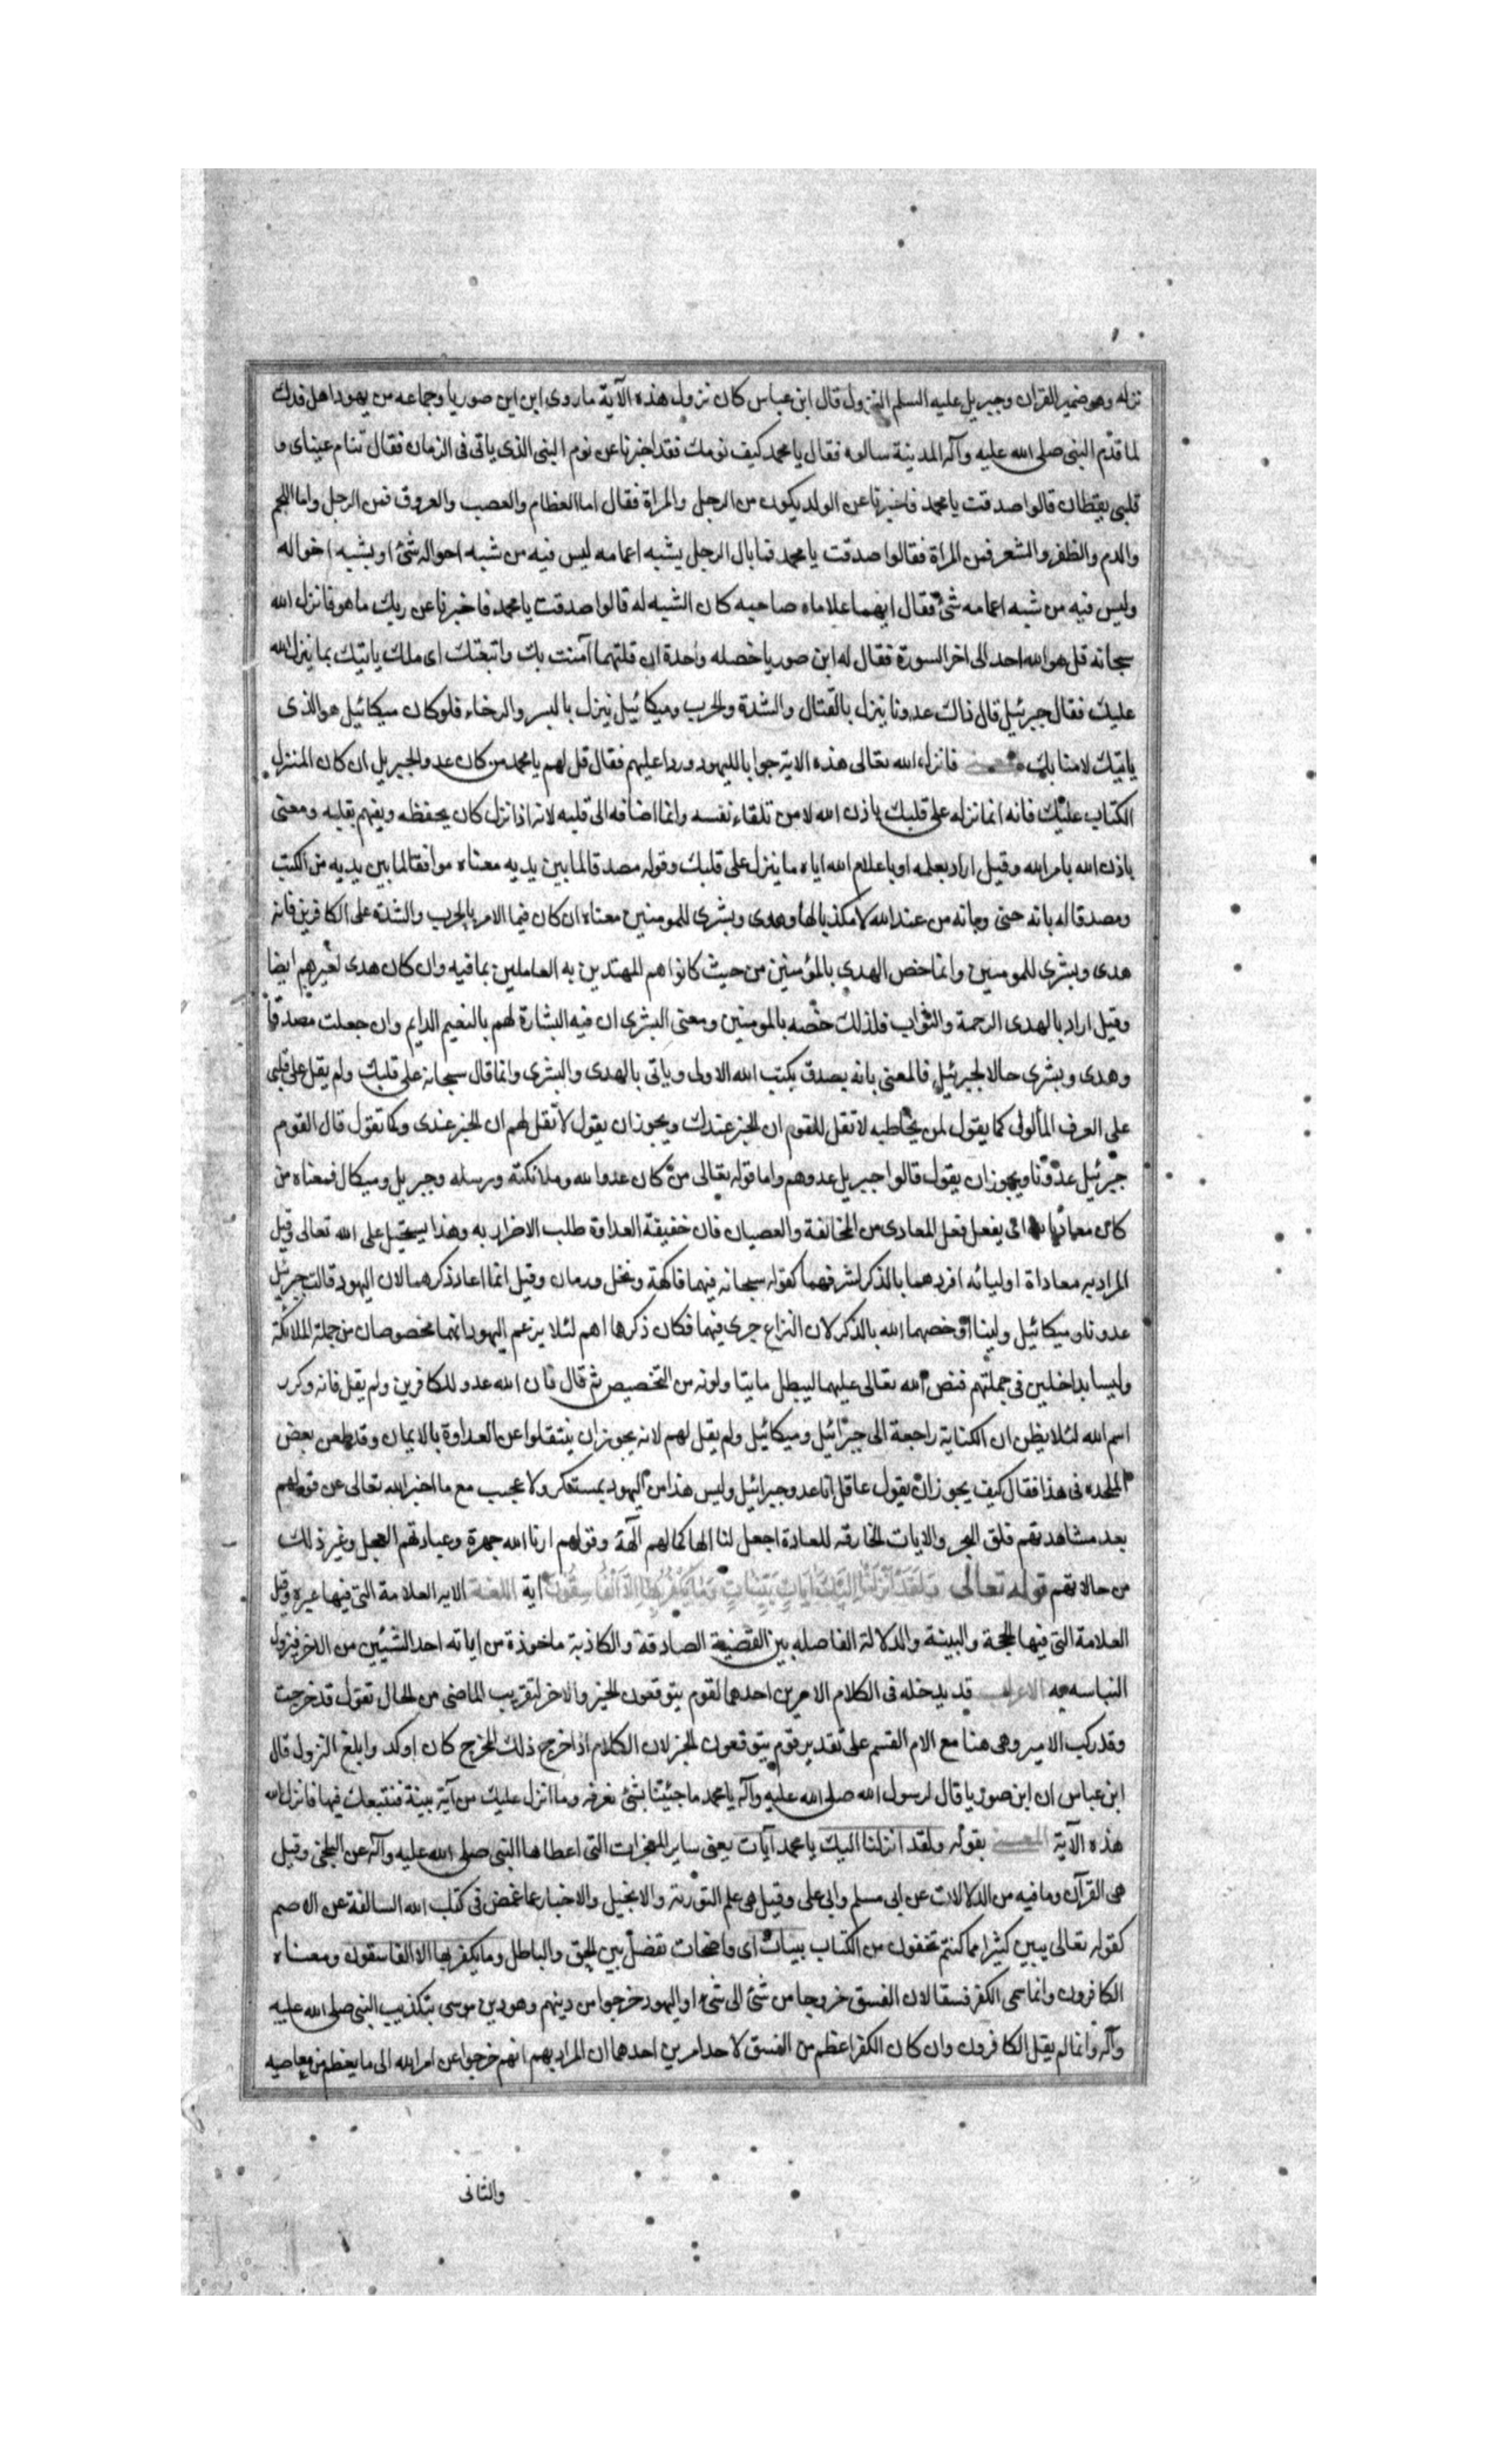 نزله وهو ضمير القران وجبريل عليه السلم النزول قال ابن عباس كان نزول هذه الآية ما روى ابن ابن صوريا وجماعه من يهود اهل فدك
لما قدّم النبى صلى الله عليه وآله المدينة سالوه فقال يا محمد كيف نومك فقد اخبرنا عن نوم النبى الذى ياتى فى الزمان فقال تنام عيناى و
قلبى يقظان قالوا صدقت يا محمد فاخبرنا عن الولد يكون من الرجل والمراة فقال اما العظام والعصب والعروق فمن الرجل واما اللحم
والدم والظفر والشعر فمن المراة فقالوا صدقت يا محمد فما بال الرجل يشبه اعمامه ليس فيه من شبه احواله شئ او يشبه اخواله
وليس فيه من شبه اعمامه شئ فقال ايهما علا ماه صاحبه كان الشبه له قالوا صدقت يا محمد فاخبرنا عن ربك ما هو فانزل الله
سبحانه قل هو الله احد الى اخر السورة فقال له ابن صوريا خصله واحدة ان قلتها آمنت بك واتبعتك اى ملك ياتيك بما ينزل الله
عليك فقال جبرئيل قال ذاك عدونا ينزل بالقتال والشدة والحرب وميكائيل ينزل باليسر والرخاء فلو كان ميكائيل هو الذى
ياتيك لامنا بك فانزل الله تعالى هذه الاية جوابا لليهود وردا عليهم فقال قل لهم يا محمد من كان عدوا لجبريل ان كان المنزل
الكتاب عليك فانه انما نزله على قلبك باذن الله لا من تلقاء نفسه وانما اضافه الى قلبه لانه اذا نزل كان يحفظه ويفهم بقلبه ومعنى
باذن الله بامر الله وقيل اراد بعلمه او باعلام الله اياه ما ينزل على قلبك وقوله مصدقا لما بين يديه معناه موافقا لما بين يديه من الكتب
ومصدقا له بانه حق وبانه من عند الله لا مكذبا لها وهدى وبشرى للمومنين معناه ان كان فيما الامر بالحرب والشدة على الكافرين فانه
هدى وبشرى للمومنين وانما خص الهدى بالمؤمنين من حيث كانوا هم المهتدين به العاملين بما فيه وان كان هدى لغيرهم ايضا
وقيل اراد بالهدى الرحمة والثواب فلذلك خصّه بالمومنين ومعنى البشرى ان فيه البشارة لهم بالنعيم الدايم وان جعلت مصدقا
وهدى وبشرى حالا لجبرئيل فالمعنى بانه يصدق بكتب الله الاولى وياتى بالهدى والبشرى وانما قال سبحانه على قلبك ولم يقل على قلبى
على العرف المألوف كما يقول لمن يخاطبه لا تقل للقوم ان الخبر عندك ويجوز ان يقول لا تقل لهم ان الخبر عندى وكما تقول قال القوم
جبرئيل عدوّنا ويجوز ان يقول قالوا جبريل عدوهم واما قوله تعالى من كان عدوا لله وملائكته ورسله وجبريل وميكال فمعناه من
كان معاديا لله اى يفعل فعل المعادى من المخالفة والعصيان فان حقيقة العداوة طلب الاضرار به وهذا يستحيل على الله تعالى وقيل
المراد به معاداة اوليائه افردهما بالذكر لشرفهما كقوله سبحانه فيهما فاكهة ونخل ورمان وقيل انما اعاد ذكرهما لان اليهود قالت جبرئيل
عدونا وميكائيل ولينا خصهما الله بالذكر لان النزاع جرى فيهما فكان ذكرها اهم لئلا يزعم اليهود انهما مخصوصان من جملة الملائكة
وليسا بداخلين فى جملتهم فنص الله تعالى عليهما ليبطل ما يتاولونه من التخصيص ثم قال فان الله عدو للكافرين ولم يقل فانه وكرر
اسم الله لئلا يظن ان الكناية راجعة الى جبرائيل وميكائيل ولم يقل لهم لانه يجوز ان ينتقلوا عن العداوة بالايمان وقد طعن بعض
الملحده فى هذا فقال كيف يجوز ان يقول عاقل انا عدو جبرائيل وليس هذا من اليهود بمستنكر ولا عجيب مع ما اخبر الله تعالى عن قولهم
بعد مشاهدتهم فلق البحر والايات الخارقه للعادة اجعل لنا الها كما لهم آلهة وقولهم ارنا الله جهرة وعبادتهم العجل وغير ذلك
من حالاتهم قوله تعالى وَلَقَدْ اَنْزَلْنَا اِلَيْكَ آيَاتٍ بَيِّنَاتٍ وَمَا يَكْفُرُ بِهَا اِلَّا الْفَاسِقُونَ اية اللغة الايه العلامة التى فيها عبره وقيل
العلامة التى فيها الحجة والبينة والدلالة الفاصله بين القضية الصادقة والكاذبة ماخوذة من اياته احد الشيئين من الاخر فيزول
التباسه به الاعراب قد يدخله فى الكلام الامرين احدهما لقوم يتوقعون الخبر والاخر لتقريب الماضى من الحال تقول قد خرجت
وقد ركب الامير وهى هنا مع الام القسم على تقدير قوم يتوقعون الخبر لان الكلام اذا خرج ذلك المخرج كان اوكد وابلغ النزول قال
ابن عباس ان ابن صوريا قال لرسول الله صلى الله عليه وآله يا محمد ما جئيتنا بشئ نعرفه وما انزل عليك من آية بينة فنتبعك فيها فانزل الله
هذه الآية المعنى بقوله ولقد انزلنا اليك يا محمد آيات يعنى ساير المعجزات التى اعطاها النبى صلى الله عليه وآله عن البلخى وقيل
هى القرآن وما فيه من الدلالات عن ابى مسلم وابى على وقيل هى علم التورية والانجيل والاخبار عما غمض فى كتب الله السالفة عن الاصم
كقوله تعالى يبين كثيرا مما كنتم تخفون من الكتاب بينات اى واضحات تفضل بين الحق والباطل وما يكفر بها الا الفاسقون ومعناه
الكافرون وانما سمى الكفر فسقا لان الفسق خروجا من شئ الى شئ واليهود خرجوا من دينهم وهو دين موسى بتكذيب النبى صلى الله عليه
وآله وانما لم يقل الكافرون وان كان الكفر اعظم من الفسق لاحد امرين احدهما ان المراد بهم انهم خرجوا عن امر الله الى ما يعظم من معاصيه
والثانى